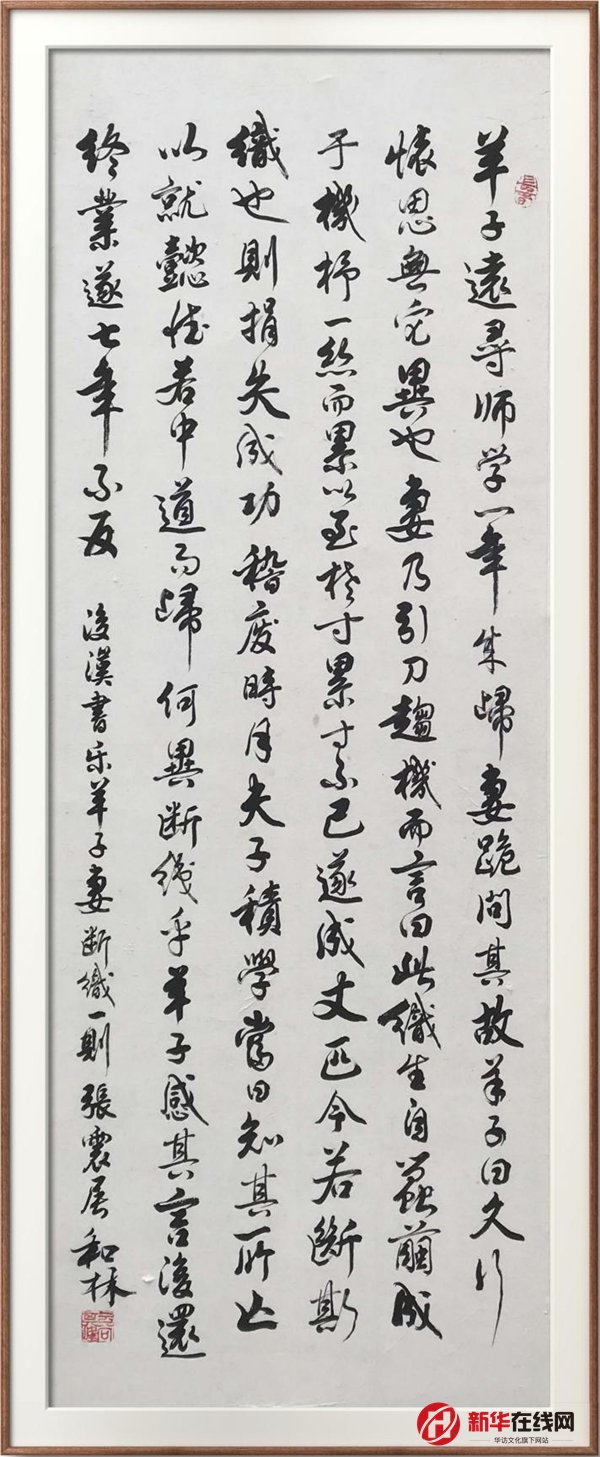 羊子遠尋師学一年来歸妻跪問其故羊子曰久行
懐思無它異也妻乃引刀趨機而言曰此織生自蚕繭成
于機杼一絲而累以至於寸累寸不已遂成丈匹今若斷斯
織也則捐失成功稽廢時月夫子積學當日知其所亡
以就懿德若中道而歸何異断織乎羊子感其言復還
終業遂七年不反 後漢書乐羊子妻断織一則 張震居和林
新华在线网
华访文化旗下网站